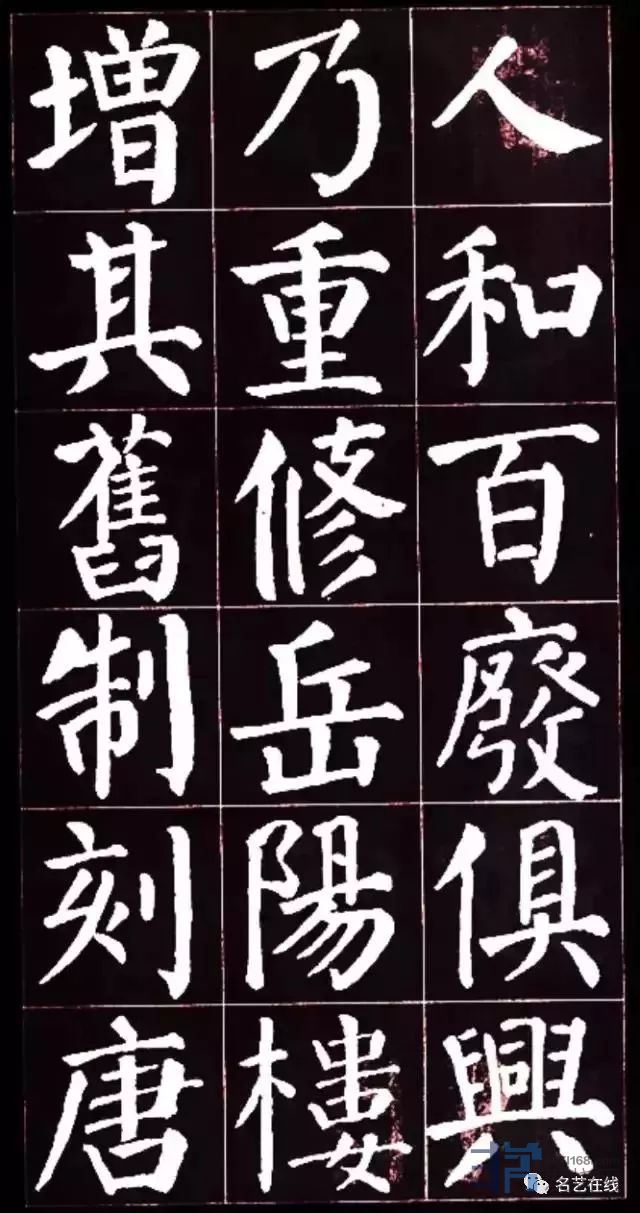 人和百廢俱興
乃重修岳陽樓
增其舊制刻唐
名艺在线